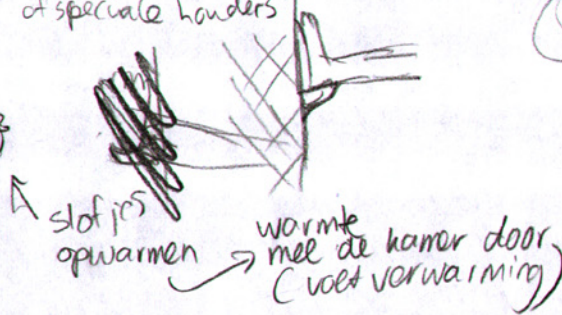 of speciale houders
slofjes
opwarmen
warmte
mee de kamer door
(voetverwarming)